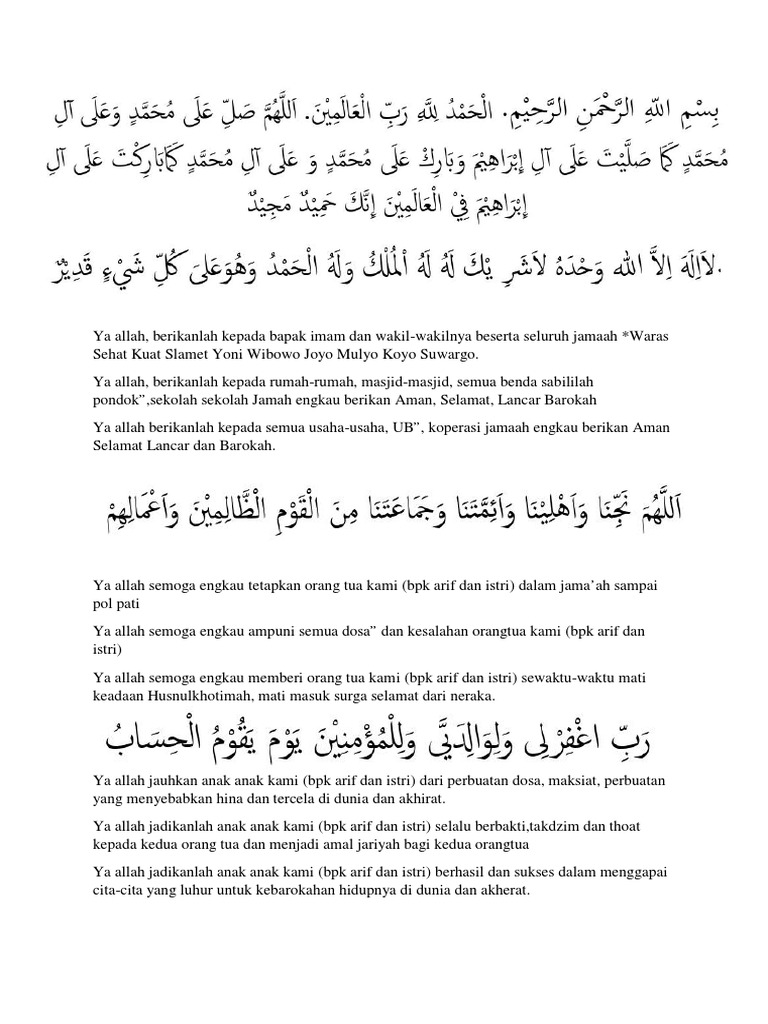 بِسْمِ اللّٰهِ الرَّحْمَنِ الرَّحِيْمِ. الْحَمْدُ لِلَّهِ رَبِّ الْعَالَمِيْنَ. اَللَّهُمَّ صَلِّ عَلَى مُحَمَّدٍ وَعَلَى آلِ
مُحَمَّدٍ كَمَا صَلَّيْتَ عَلَى آلِ إِبْرَاهِيْمَ وَبَارِكْ عَلَى مُحَمَّدٍ وَ عَلَى آلِ مُحَمَّدٍ كَمَابَارِكْتَ عَلَى آلِ
إِبْرَاهِيْمَ فِيْ الْعَالَمِيْنَ إِنَّكَ حَمِيْدٌ مَجِيْدٌ
لاَاِلَهَ اِلاَّ الله وَحْدَهُ لاَشَرِ يْكَ لَهُ لَهُ اْلمُلْكُ وَلَهُ الْحَمْدُ وَهُوَعَلىَ كُلِّ شَيْءٍ قَدِيْرٌ.
Ya allah, berikanlah kepada bapak imam dan wakil-wakilnya beserta seluruh jamaah *Waras
Sehat Kuat Slamet Yoni Wibowo Joyo Mulyo Koyo Suwargo.
Ya allah, berikanlah kepada rumah-rumah, masjid-masjid, semua benda sabililah
pondok”,sekolah sekolah Jamah engkau berikan Aman, Selamat, Lancar Barokah
Ya allah berikanlah kepada semua usaha-usaha, UB”, koperasi jamaah engkau berikan Aman
Selamat Lancar dan Barokah.
اَللَّهُمَّ نَجِّنَا وَاَهْلِيْنَا وَاَئِمَّتَنَا وَجَمَاعَتَنَا مِنَ الْقَوْمِ الْظَّالِمِيْنَ وَاَعْمَالِهِمْ
Ya allah semoga engkau tetapkan orang tua kami (bpk arif dan istri) dalam jama’ah sampai
pol pati
Ya allah semoga engkau ampuni semua dosa” dan kesalahan orangtua kami (bpk arif dan
istri)
Ya allah semoga engkau memberi orang tua kami (bpk arif dan istri) sewaktu-waktu mati
keadaan Husnulkhotimah, mati masuk surga selamat dari neraka.
رَبِّ اغْفِرْلِى وَلِوَالِدَيَّ وَلِلْمُؤْمِنِيْنَ يَوْمَ يَقُوْمُ الْحِسَابُ
Ya allah jauhkan anak anak kami (bpk arif dan istri) dari perbuatan dosa, maksiat, perbuatan
yang menyebabkan hina dan tercela di dunia dan akhirat.
Ya allah jadikanlah anak anak kami (bpk arif dan istri) selalu berbakti,takdzim dan thoat
kepada kedua orang tua dan menjadi amal jariyah bagi kedua orangtua
Ya allah jadikanlah anak anak kami (bpk arif dan istri) berhasil dan sukses dalam menggapai
cita-cita yang luhur untuk kebarokahan hidupnya di dunia dan akherat.